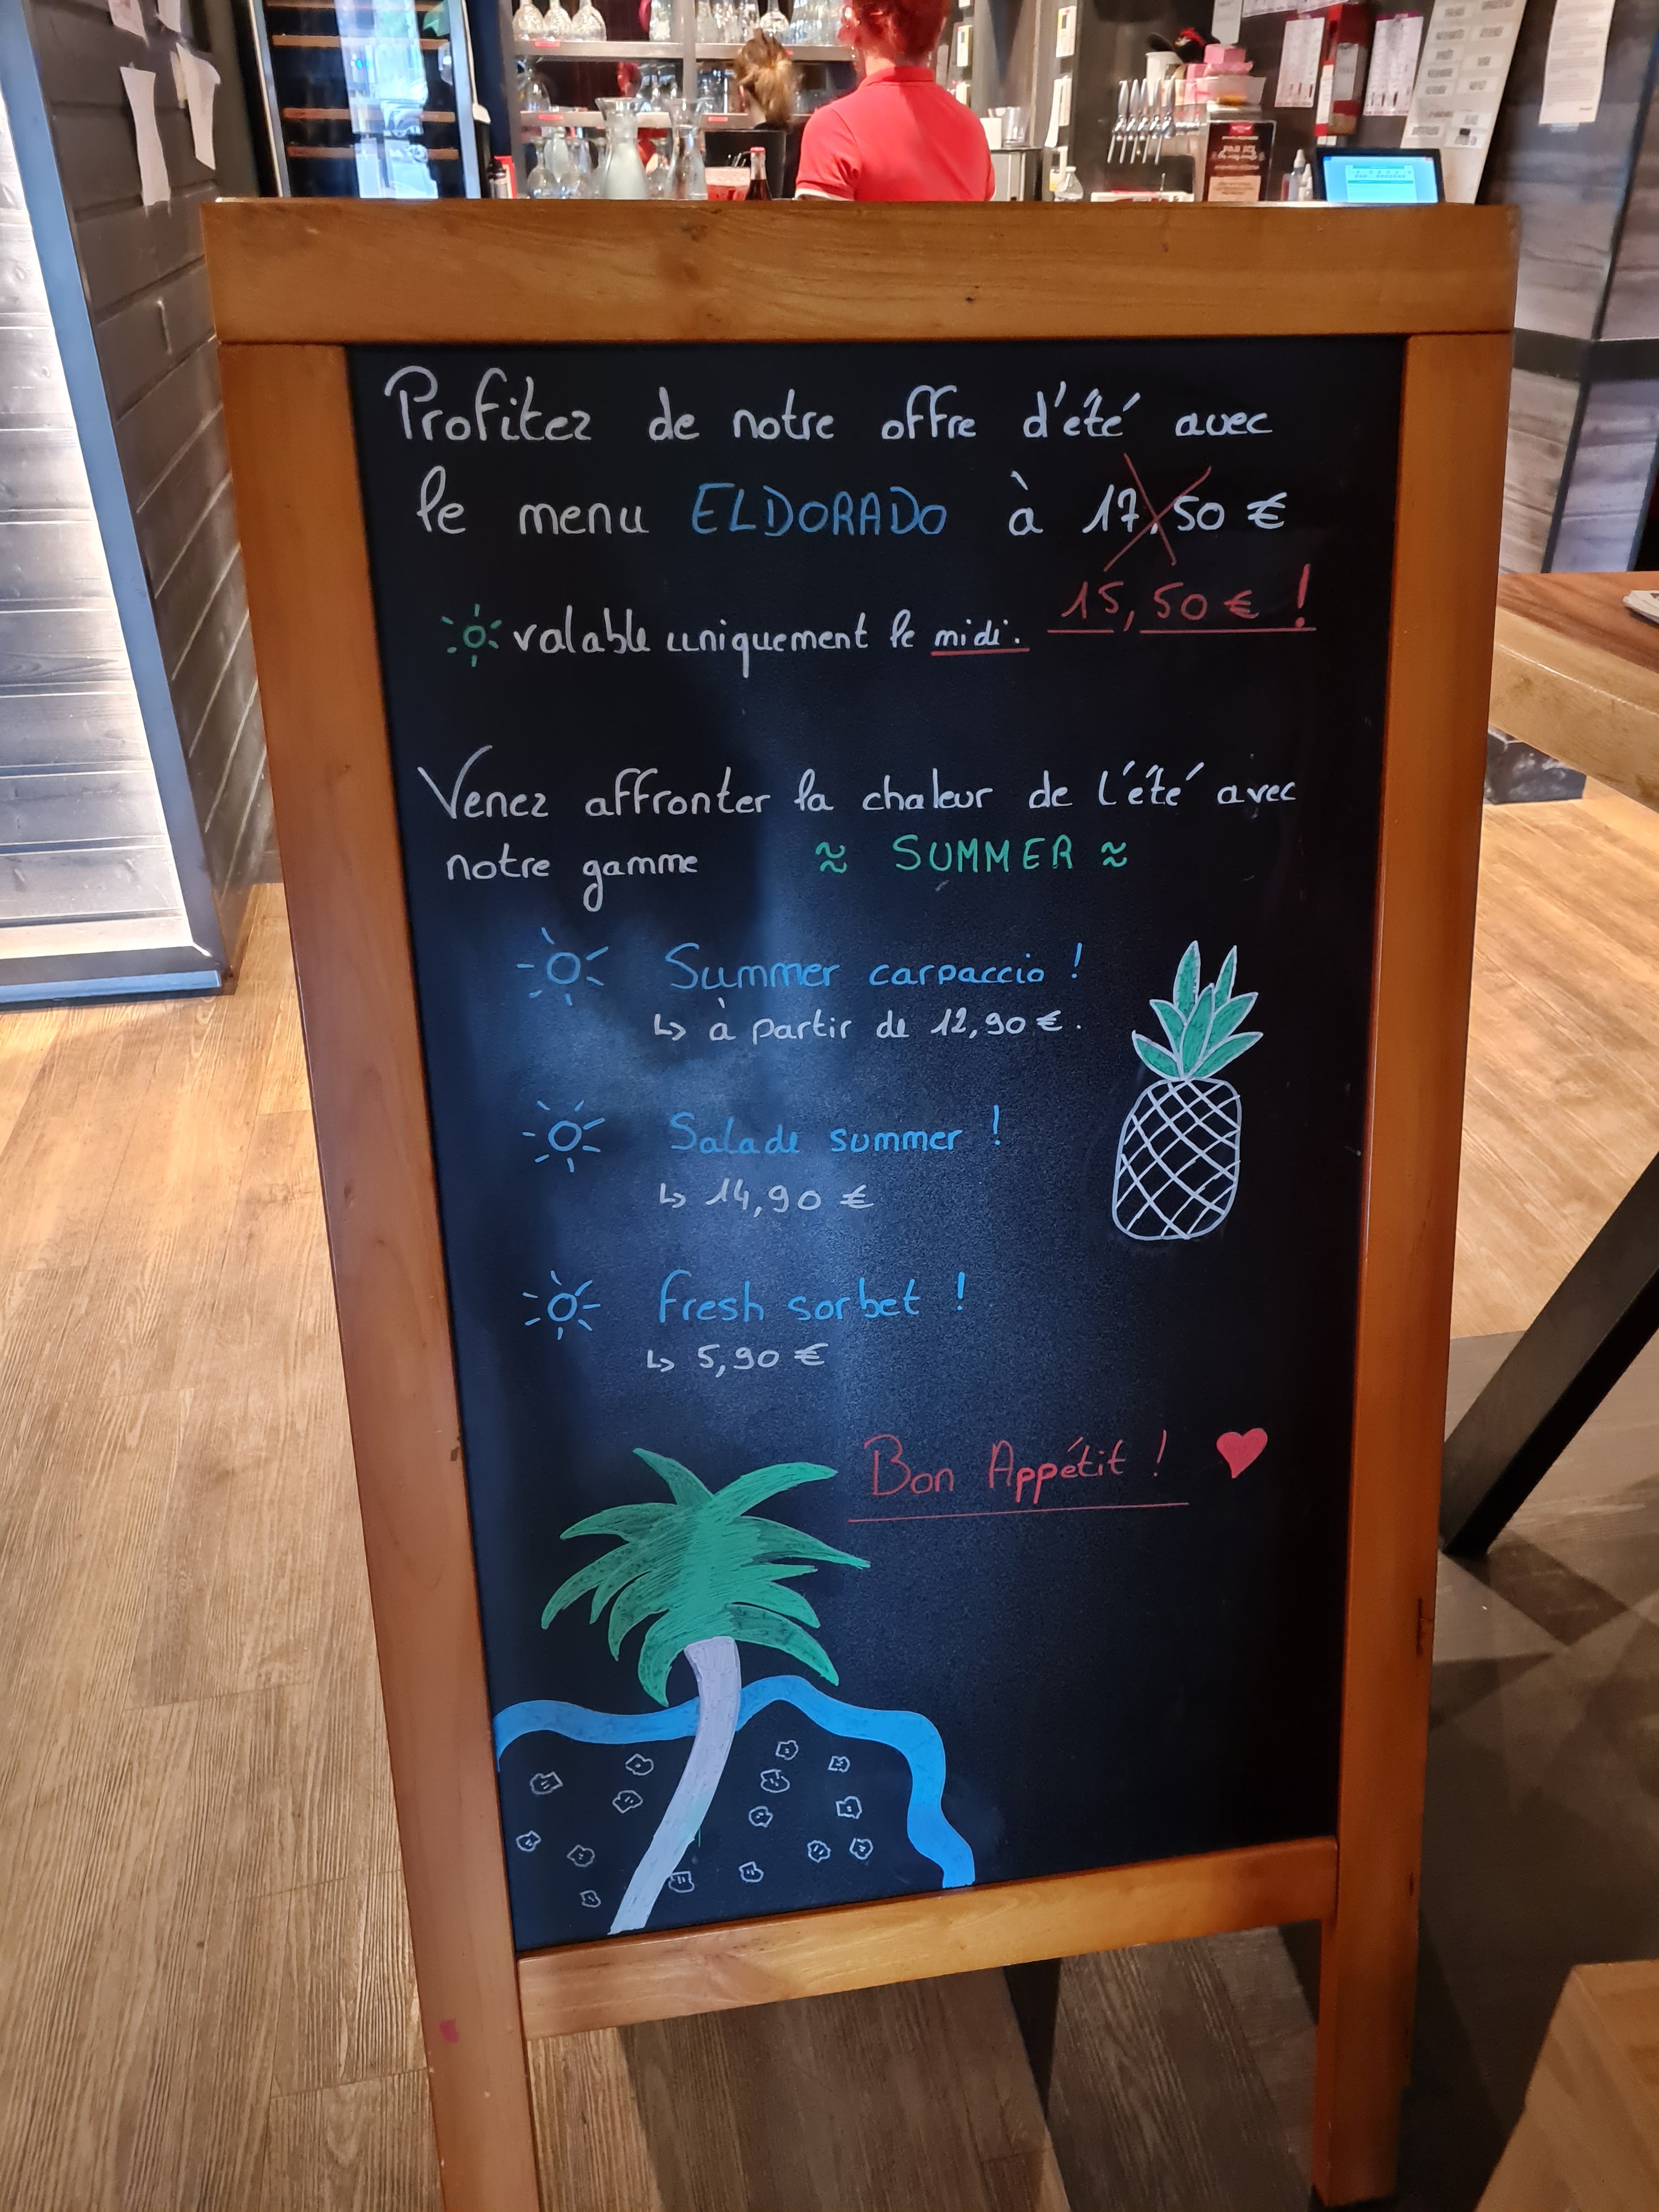 Profitez de notre offre d'été avec
le menu ELDORADO à 17,50 €
15,50 € !
valable uniquement le midi.
Venez affronter la chaleur de l'été avec
notre gamme ≈ SUMMER ≈
Summer carpaccio !
↳ à partir de 12,90 €.
Salade summer !
↳ 14,90 €
Fresh sorbet !
↳ 5,90 €
Bon Appétit ! ♥